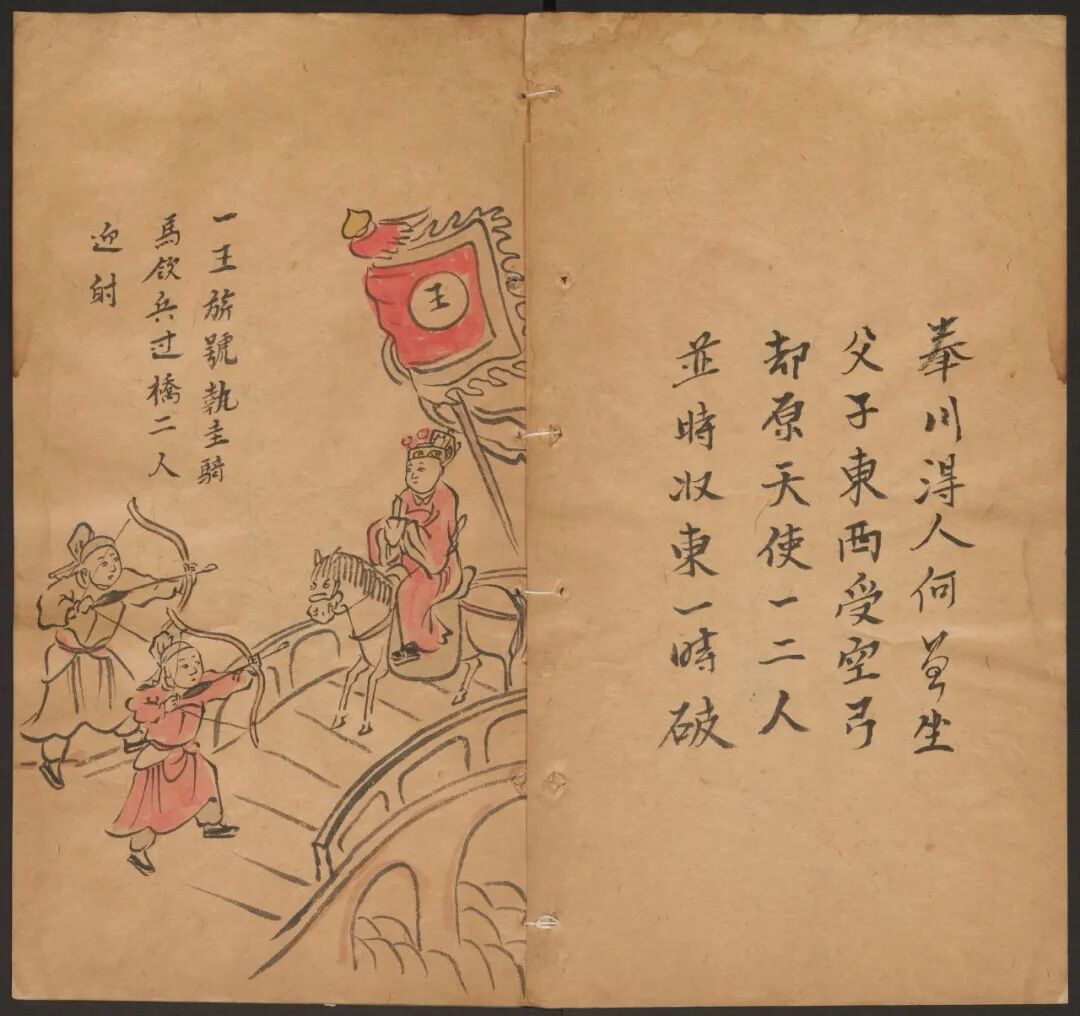 奉川淂人何𫈉坐
父子東西受空弓
却原天使一二人
並時收東一時破
王
一王旂號執圭騎
馬飲兵过橋二人
迎射